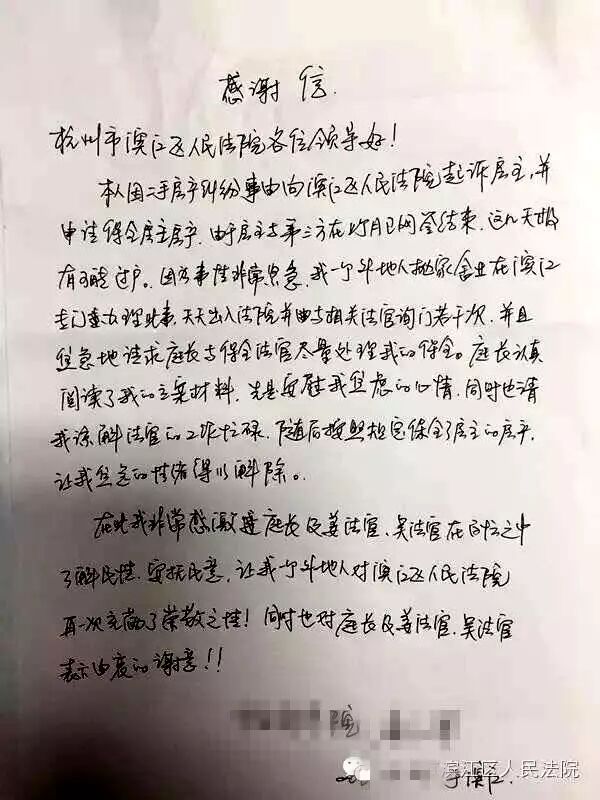 感谢信.
杭州市滨江区人民法院各位领导好！
本人因二手房产纠纷事由向滨江区人民法院起诉房主,并
申请保全房主房产.由于房主与第三方在12月已网签结束,这几天
有可能过户。因为事情非常紧急,我一个外地人抛家舍业在滨江
专门办理此事.天天出入法院并由与相关法官询问若干次.并且
焦急地请求庭长与保全法官尽量处理我的保全。庭长认真
阅读了我的立案材料.先是安慰我焦虑的心情.同时也请
我谅解法官的工作忙碌.随后按照规定保全了房主的房产.
让我焦急的情绪得以解除。
在此我非常感激庭长及姜法官.吴法官在百忙之中
了解民情.安抚民意.让我个外地人对滨江区人民法院
再一次充满了崇敬之情！同时也对庭长及姜法官.吴法官
表示由衷的谢意！！
院
于滨江.
滨江区人民法院